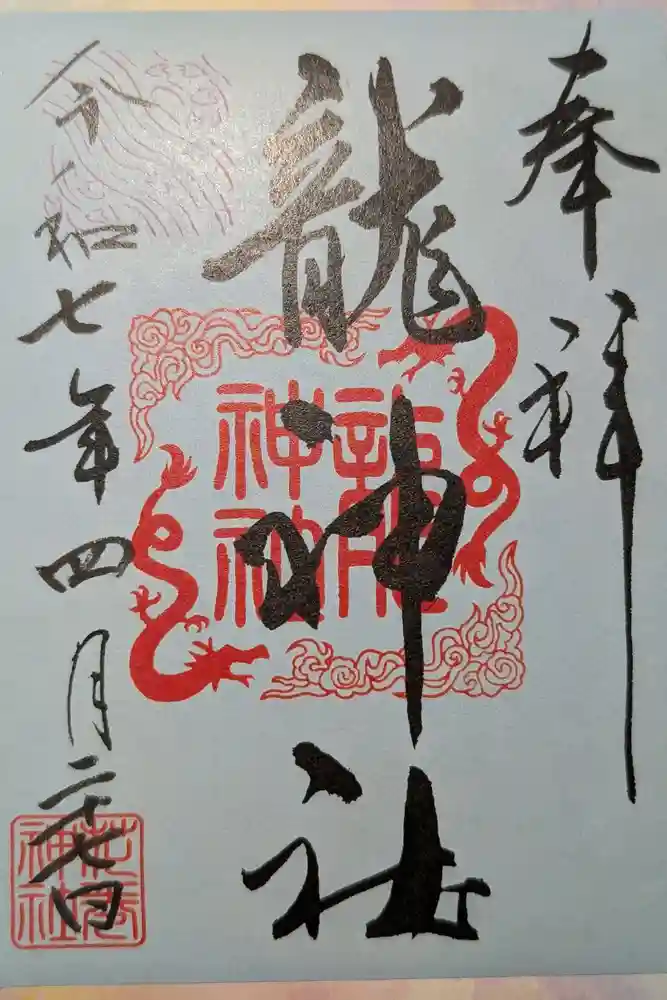 奉拝
龍神社
令和七年四月二十七日
龍
神社
神社